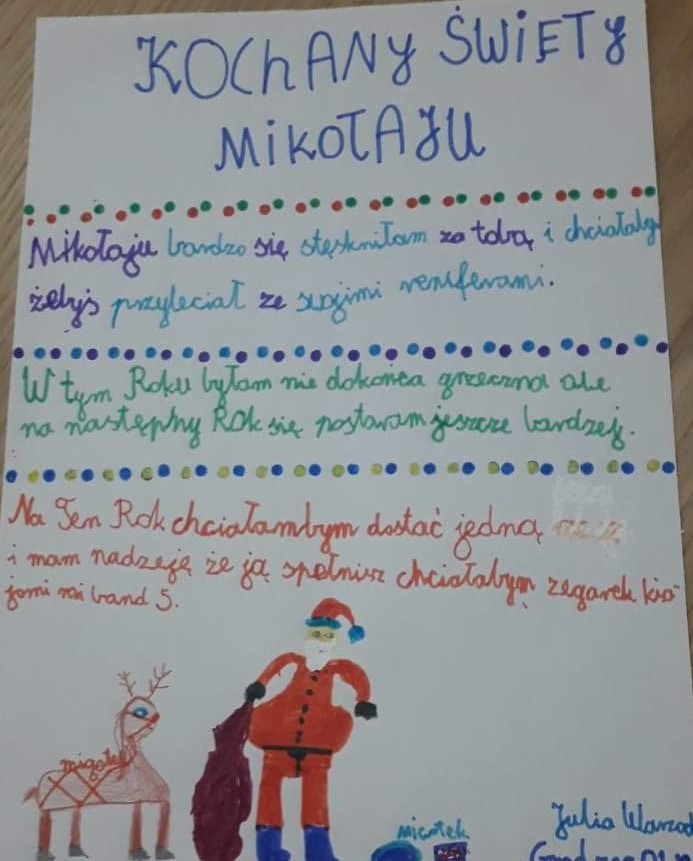 KOCHANY ŚWIĘTY
MIKOŁAJU
Mikołaju bardzo się stęskniłam za tobą i chciałaby
żebyś przyleciał ze swojimi reniferami.
W tym Roku byłam nie dokońca grzeczna ale
na następny Rok się postaram jeszcze bardzej.
Na Ten Rok chciałambym dostać jedną
i mam nadzeję że ją spełnisz chciałabym zegarek kia
jomi mi band 5.
Julia